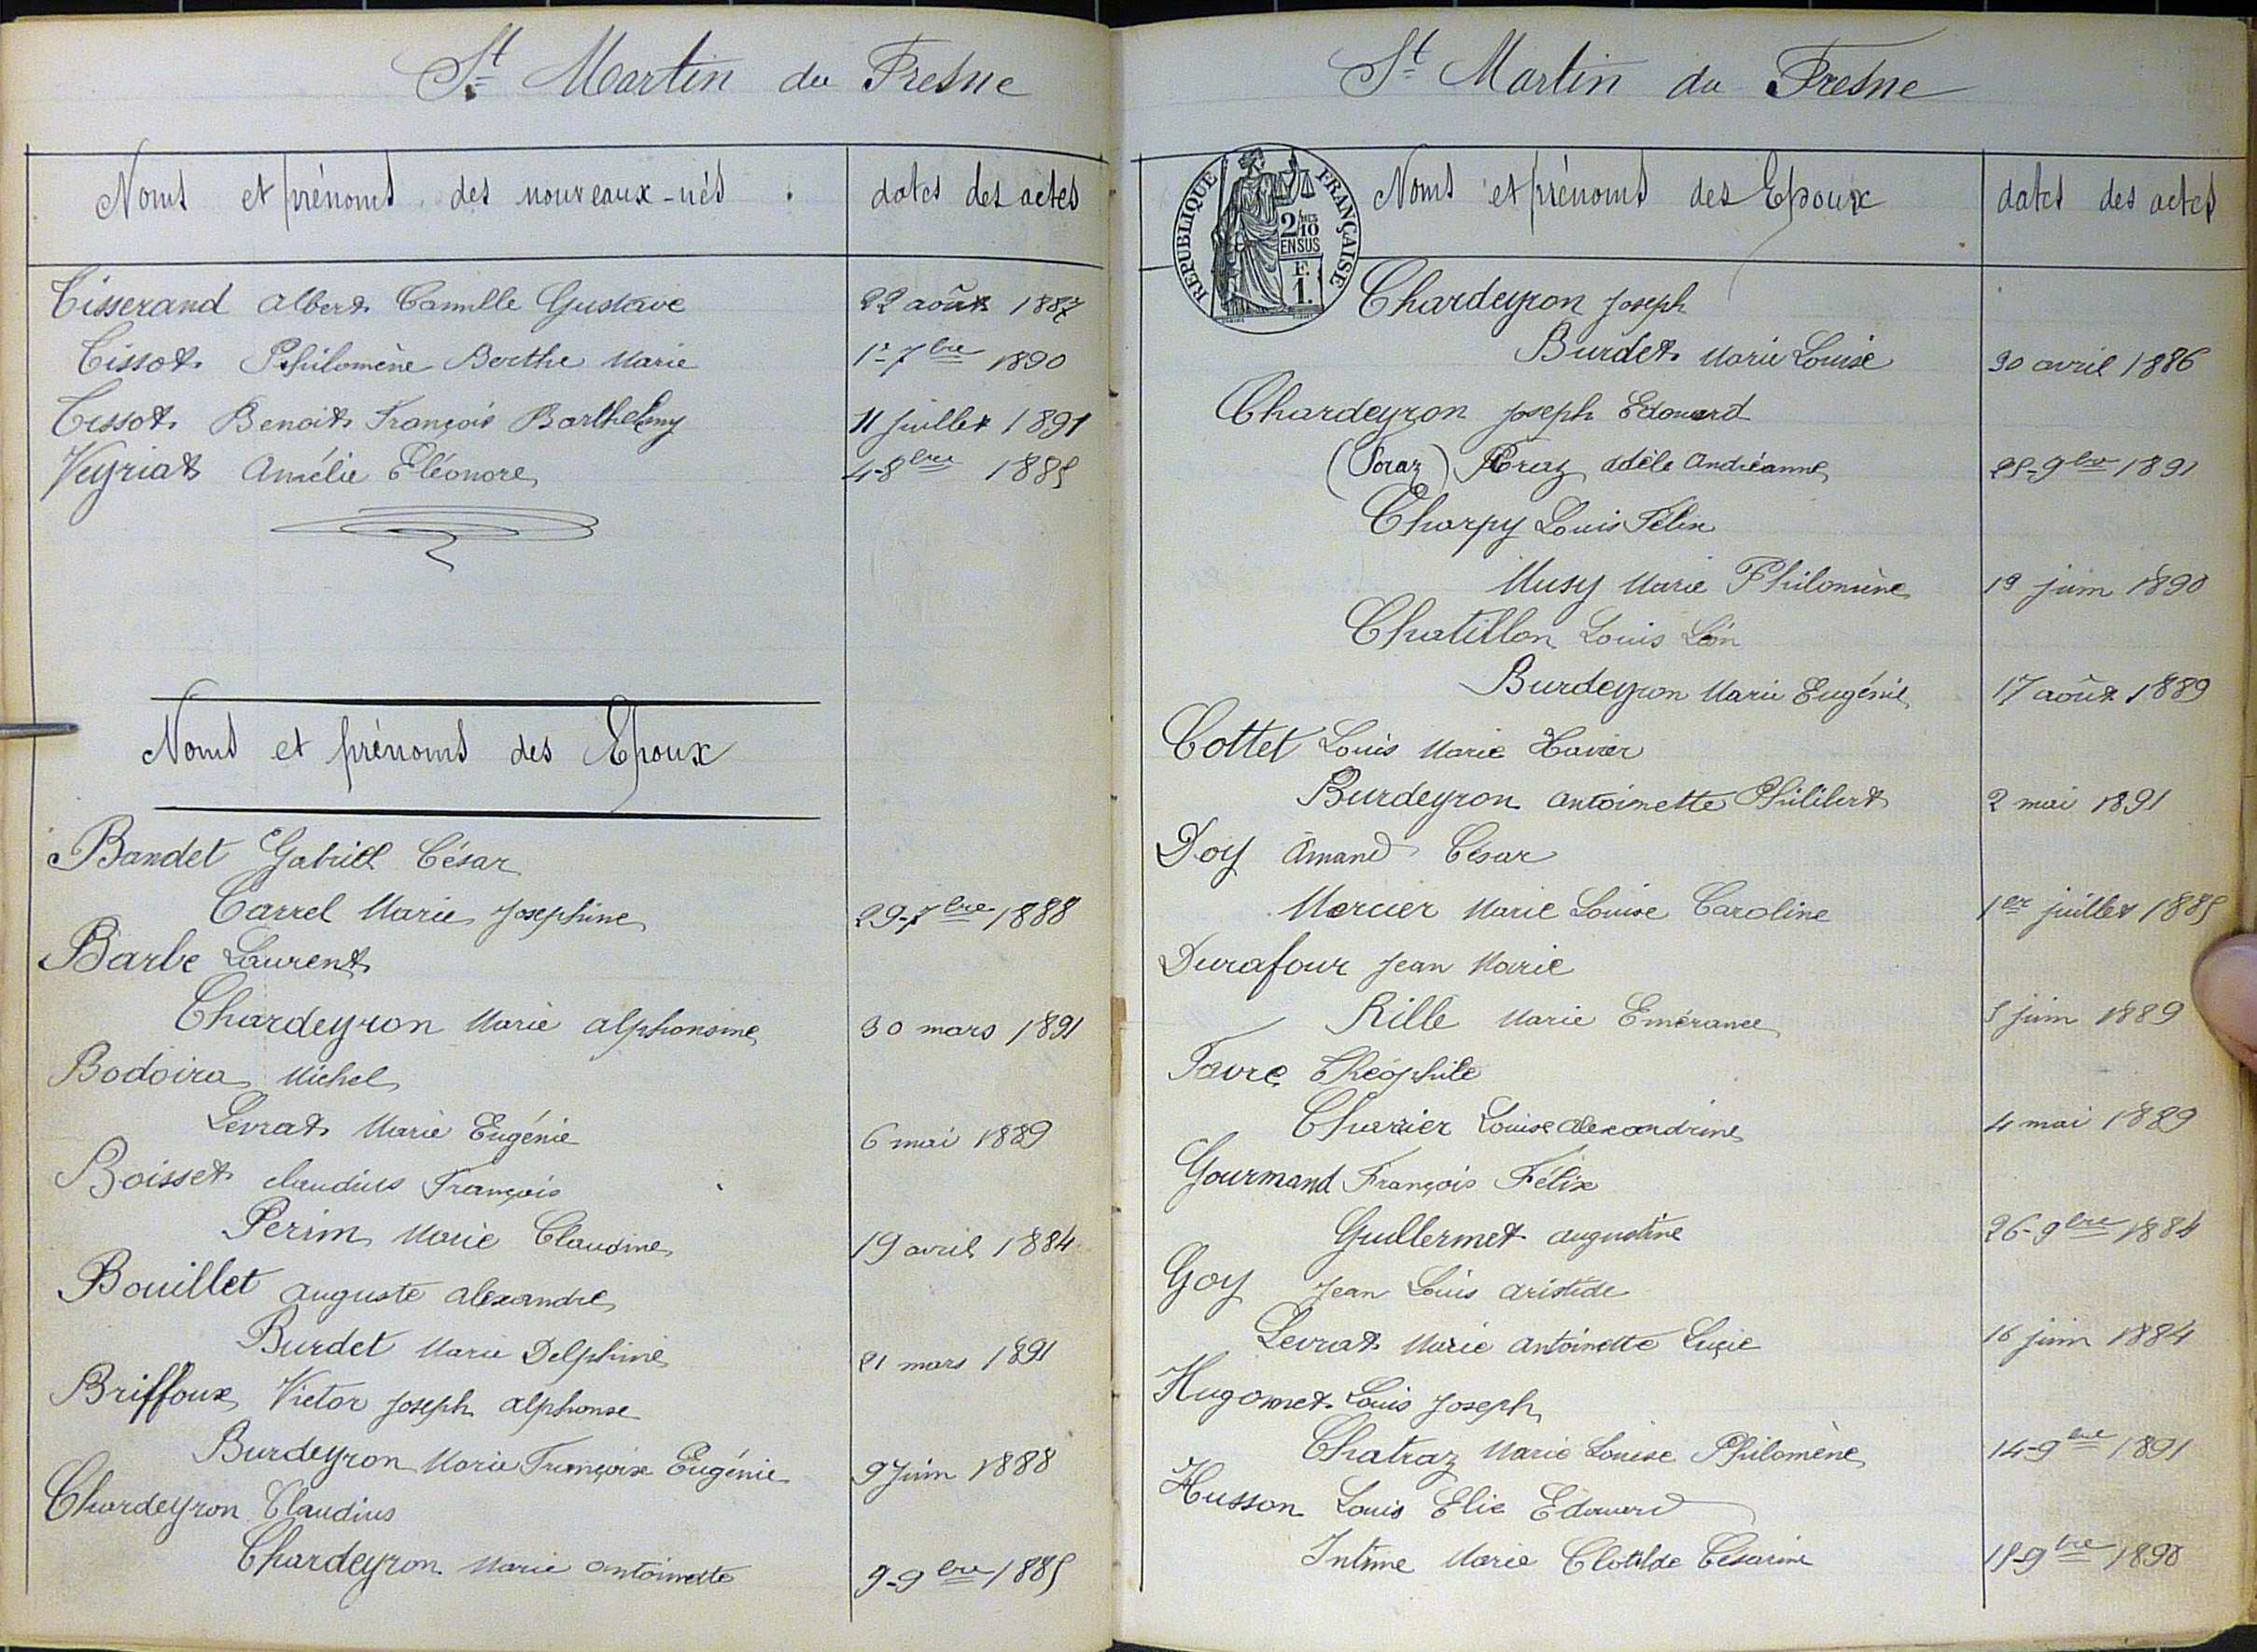 St Martin du Fresne
Noms et prénoms des nouveaux-nés
dates des actes
Tisserand Albert Camille Gustave 22 août 1887
Tissot Philomène Berthe Marie 1er 7bre 1890
Tissot Benoit François Barthelemy 11 juillet 1891
Veyriat Amélie Eléonore 4-8bre 1885
Noms et prénoms des Epoux
Bandet Gabriel César
Carrel Marie Josephine 29-7bre 1888
Barbe Laurent
Chardeyron Marie Alphonsine 30 mars 1891
Bodoira Michel
Levrat Marie Eugénie 6 mai 1889
Boisset Claudius François
Perim Marie Claudine 19 avril 1884
Bouillet Auguste Alexandre
Burdet Marie Delphine 21 mars 1891
Briffoux Victor Joseph Alphonse
Burdeyron Marie Françoise Eugénie 9 Juin 1888
Chardeyron Claudius
Chardeyron Marie Antoinette 9-9bre 1885
St Martin du Fresne
REPUBLIQUE FRANÇAISE
2/10
EN SUS
F.
1.
Noms et prénoms des Epoux
dates des actes
Chardeyron Joseph
Burdet Marie Louise 30 avril 1886
Chardeyron Joseph Edouard
(Poraz) Poraz Adèle Andréanne 25-9bre 1891
Charpy Louis Félix
Musy Marie Philomène 19 juin 1890
Chatillon Louis Léon
Burdeyron Marie Eugénie 17 août 1889
Cottet Louis Marie Xavier
Burdeyron Antoinette Philibert 2 mai 1891
Doy Amand César
Mercier Marie Louise Caroline 1er juillet 1885
Durafour Jean Marie
Rille Marie Emérance 5 juin 1889
Favre Théophile
Charrier Louise Alexandrine 4 mai 1889
Gourmand François Félix
Guillermet Augustine 26-9bre 1884
Goy Jean Louis Aristide
Levrat Marie Antoinette Lucie 16 juin 1884
Hugonnet Louis Joseph
Chatraz Marie Louise Philomène 14-9bre 1891
Husson Louis Elie Edouard
Intime Marie Clotilde Césarine 15-9bre 1890